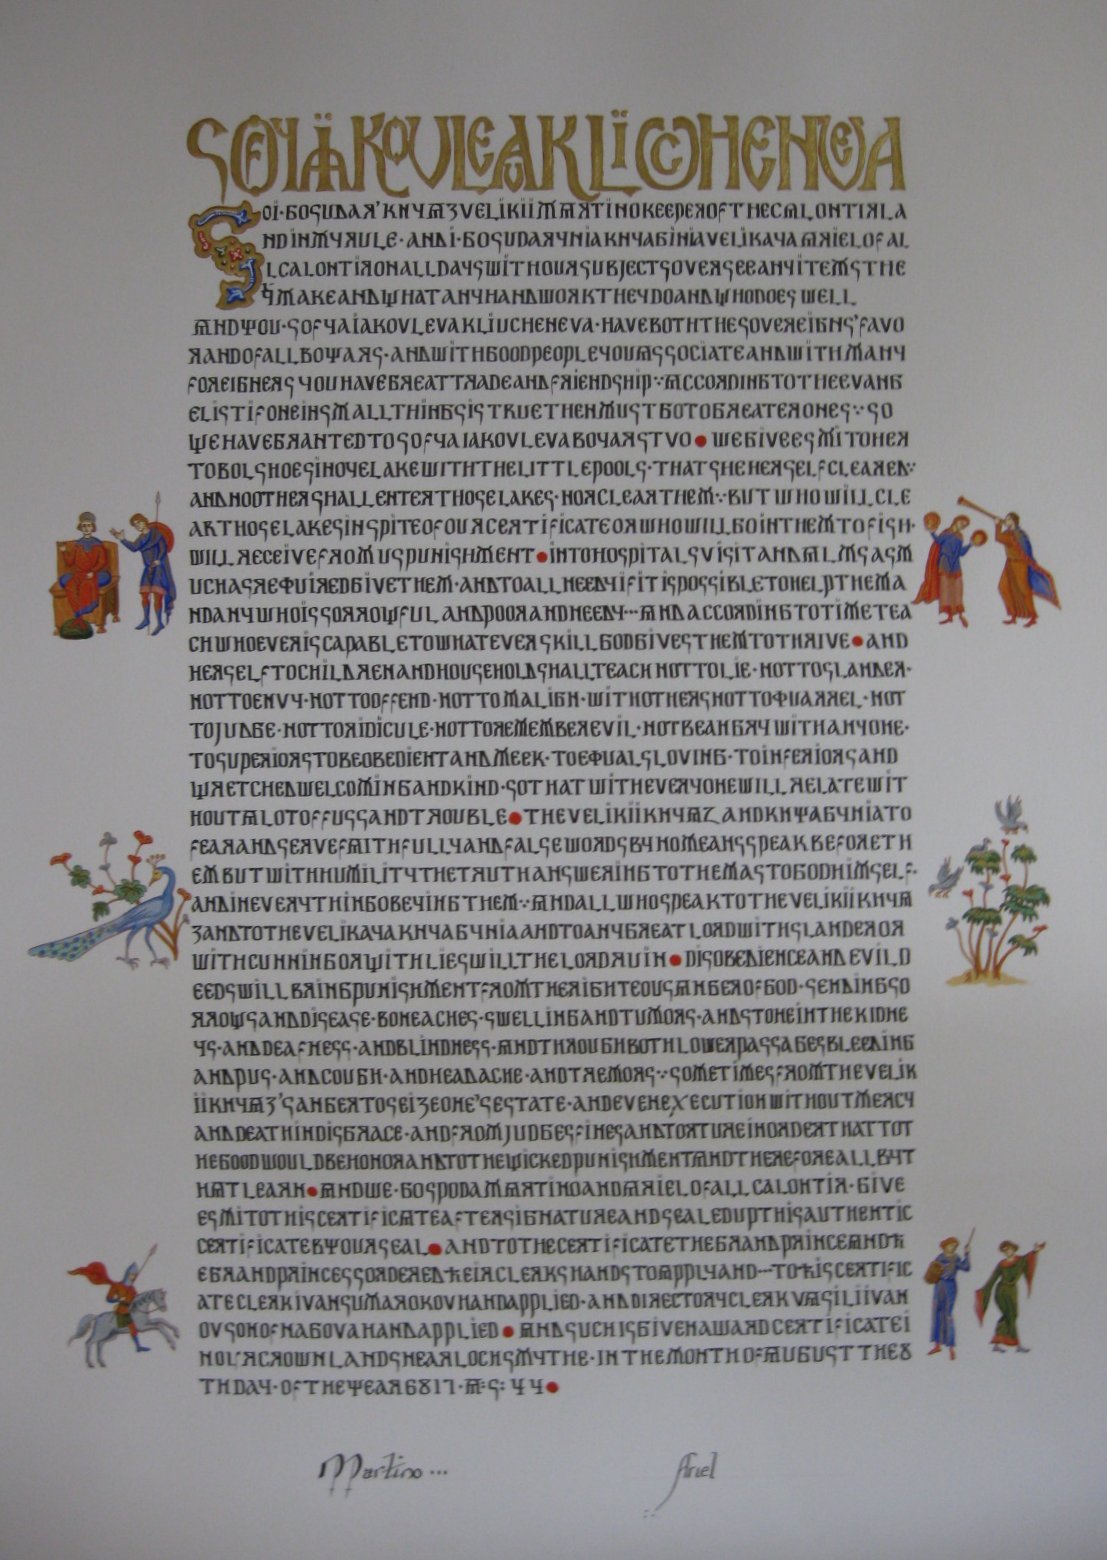 SOFYIAKOVLEVAKLIUCHENEVA
SOI·GOSUDAR'KNYAZVELIKIIMARTINOKEEPEROFTHECALONTIRLA
NDINMYRULE·ANDI·GOSUDARYNIAKNYAGINIAVELIKAYAARIELOFAL
LCALONTIRONALLDAYSWITHOURSUBJECTSOVERSEEANYITEMSTHE
YMAKEANDWHATANYHANDWORKTHEYDOANDWHODOESWELL
ANDYOU·SOFYAIAKOVLEVAKLIUCHENEVA·HAVEBOTHTHESOVEREIGNS'FAVO
RANDOFALLBOYARS·ANDWITHGOODPEOPLEYOUASSOCIATEANDWITHMANY
FOREIGNERSYOUHAVEGREATTRADEANDFRIENDSHIP∵ACCORDINGTOTHEEVANG
ELISTIFONEINSMALLTHINGSISTRUETHENMUSTGOTOGREATERONES∵SO
WEHAVEGRANTEDTOSOFYAIAKOVLEVABOYARSTVO●WEGIVEESMITOHER
TOBOLSHOESINOYELAKEWITHTHELITTLEPOOLS·THATSHEHERSELFCLEARED∵
ANDNOOTHERSHALLENTERTHOSELAKES·NORCLEARTHEM∵BUTWHOWILLCLE
ARTHOSELAKESINSPITEOFOURCERTIFICATEORWHOWILLGOINTHEMTOFISH·
WILLRECEIVEFROMUSPUNISHMENT●INTOHOSPITALSVISITANDALMSASM
UCHASREQUIREDGIVETHEM·ANDTOALLNEEDYIFITISPOSSIBLETOHELPTHEMA
NDANYWHOISSORROWFULANDPOORANDNEEDY···ANDACCORDINGTOTIMETEA
CHWHOEVERISCAPABLETOWHATEVERSKILLGODGIVESTHEMTOTHRIVE●AND
HERSELFTOCHILDRENANDHOUSEHOLDSHALLTEACHNOTTOLIE·NOTTOSLANDER·
NOTTOENVY·NOTTOOFFEND·NOTTOMALIGN·WITHOTHERSNOTTOQUARREL·NOT
TOJUDGE·NOTTORIDICULE·NOTTOREMEMBEREVIL·NOTBEANGRYWITHANYONE·
TOSUPERIORSTOBEOBEDIENTANDMEEK·TOEQUALSLOVING·TOINFERIORSAND
WRETCHEDWELCOMINGANDKIND·SOTHATWITHEVERYONEWILLRELATEWIT
HOUTALOTOFFUSSANDTROUBLE●THEVELIKIIKNYAZANDKNYAGYNIATO
FEARANDSERVEFAITHFULLYANDFALSEWORDSBYNOMEANSSPEAKBEFORETH
EMBUTWITHHUMILITYTHETRUTHANSWERINGTOTHEMASTOGODHIMSELF·
ANDINEVERYTHINGOBEYINGTHEM∵ANDALLWHOSPEAKTOTHEVELIKIIKNYA
ZANDTOTHEVELIKAYAKNYAGYNIAANDTOANYGREATLORDWITHSLANDEROR
WITHCUNNINGORWITHLIESWILLTHELORDRUIN●DISOBEDIENCEANDEVILD
EEDSWILLBRINGPUNISHMENTFROMTHERIGHTEOUSANGEROFGOD·SENDINGSO
RROWSANDDISEASE·BONEACHES·SWELLINGANDTUMORS·ANDSTONEINTHEKIDNE
YS·ANDDEAFNESS·ANDBLINDNESS·ANDTHROUGHBOTHLOWERPASSAGESBLEEDING
ANDPUS·ANDCOUGH·ANDHEADACHE·ANDTREMORS∵SOMETIMESFROMTHEVELIK
IIKNYAZ'SANGERTOSEIZEONE'SESTATE·ANDEVENEXECUTIONWITHOUTMERCY
ANDDEATHINDISGRACE·ANDFROMJUDGESFINESANDTORTUREINORDERTHATTOT
HEGOODWOULDBEHONORANDTOTHEWICKEDPUNISHMENTANDTHEREFOREALLBYT
HATLEARN●ANDWE·GOSPODAMARTINOANDARIELOFALLCALONTIR·GIVE
ESMITOTHISCERTIFICATEAFTERSIGNATUREANDSEALEDUPTHISAUTHENTIC
CERTIFICATEBYOURSEAL●ANDTOTHECERTIFICATETHEGRANDPRINCEANDTH
EGRANDPRINCESSORDEREDTHEIRCLERKSHANDSTOAPPLYAND···TOTHISCERTIFIC
ATECLERKIVANSUMAROKOVHANDAPPLIED·ANDDIRECTORYCLERKVASILIIIVAN
OVSONOFNAGOVAHANDAPPLIED●ANDSUCHISGIVENAWARDCERTIFICATEI
NOURCROWNLANDSNEARLOCHSMYTHE·INTHEMONTHOFAUGUSTTHE8
THDAY·OFTHEYEAR6817·A:S:44●
Martino ···
Ariel